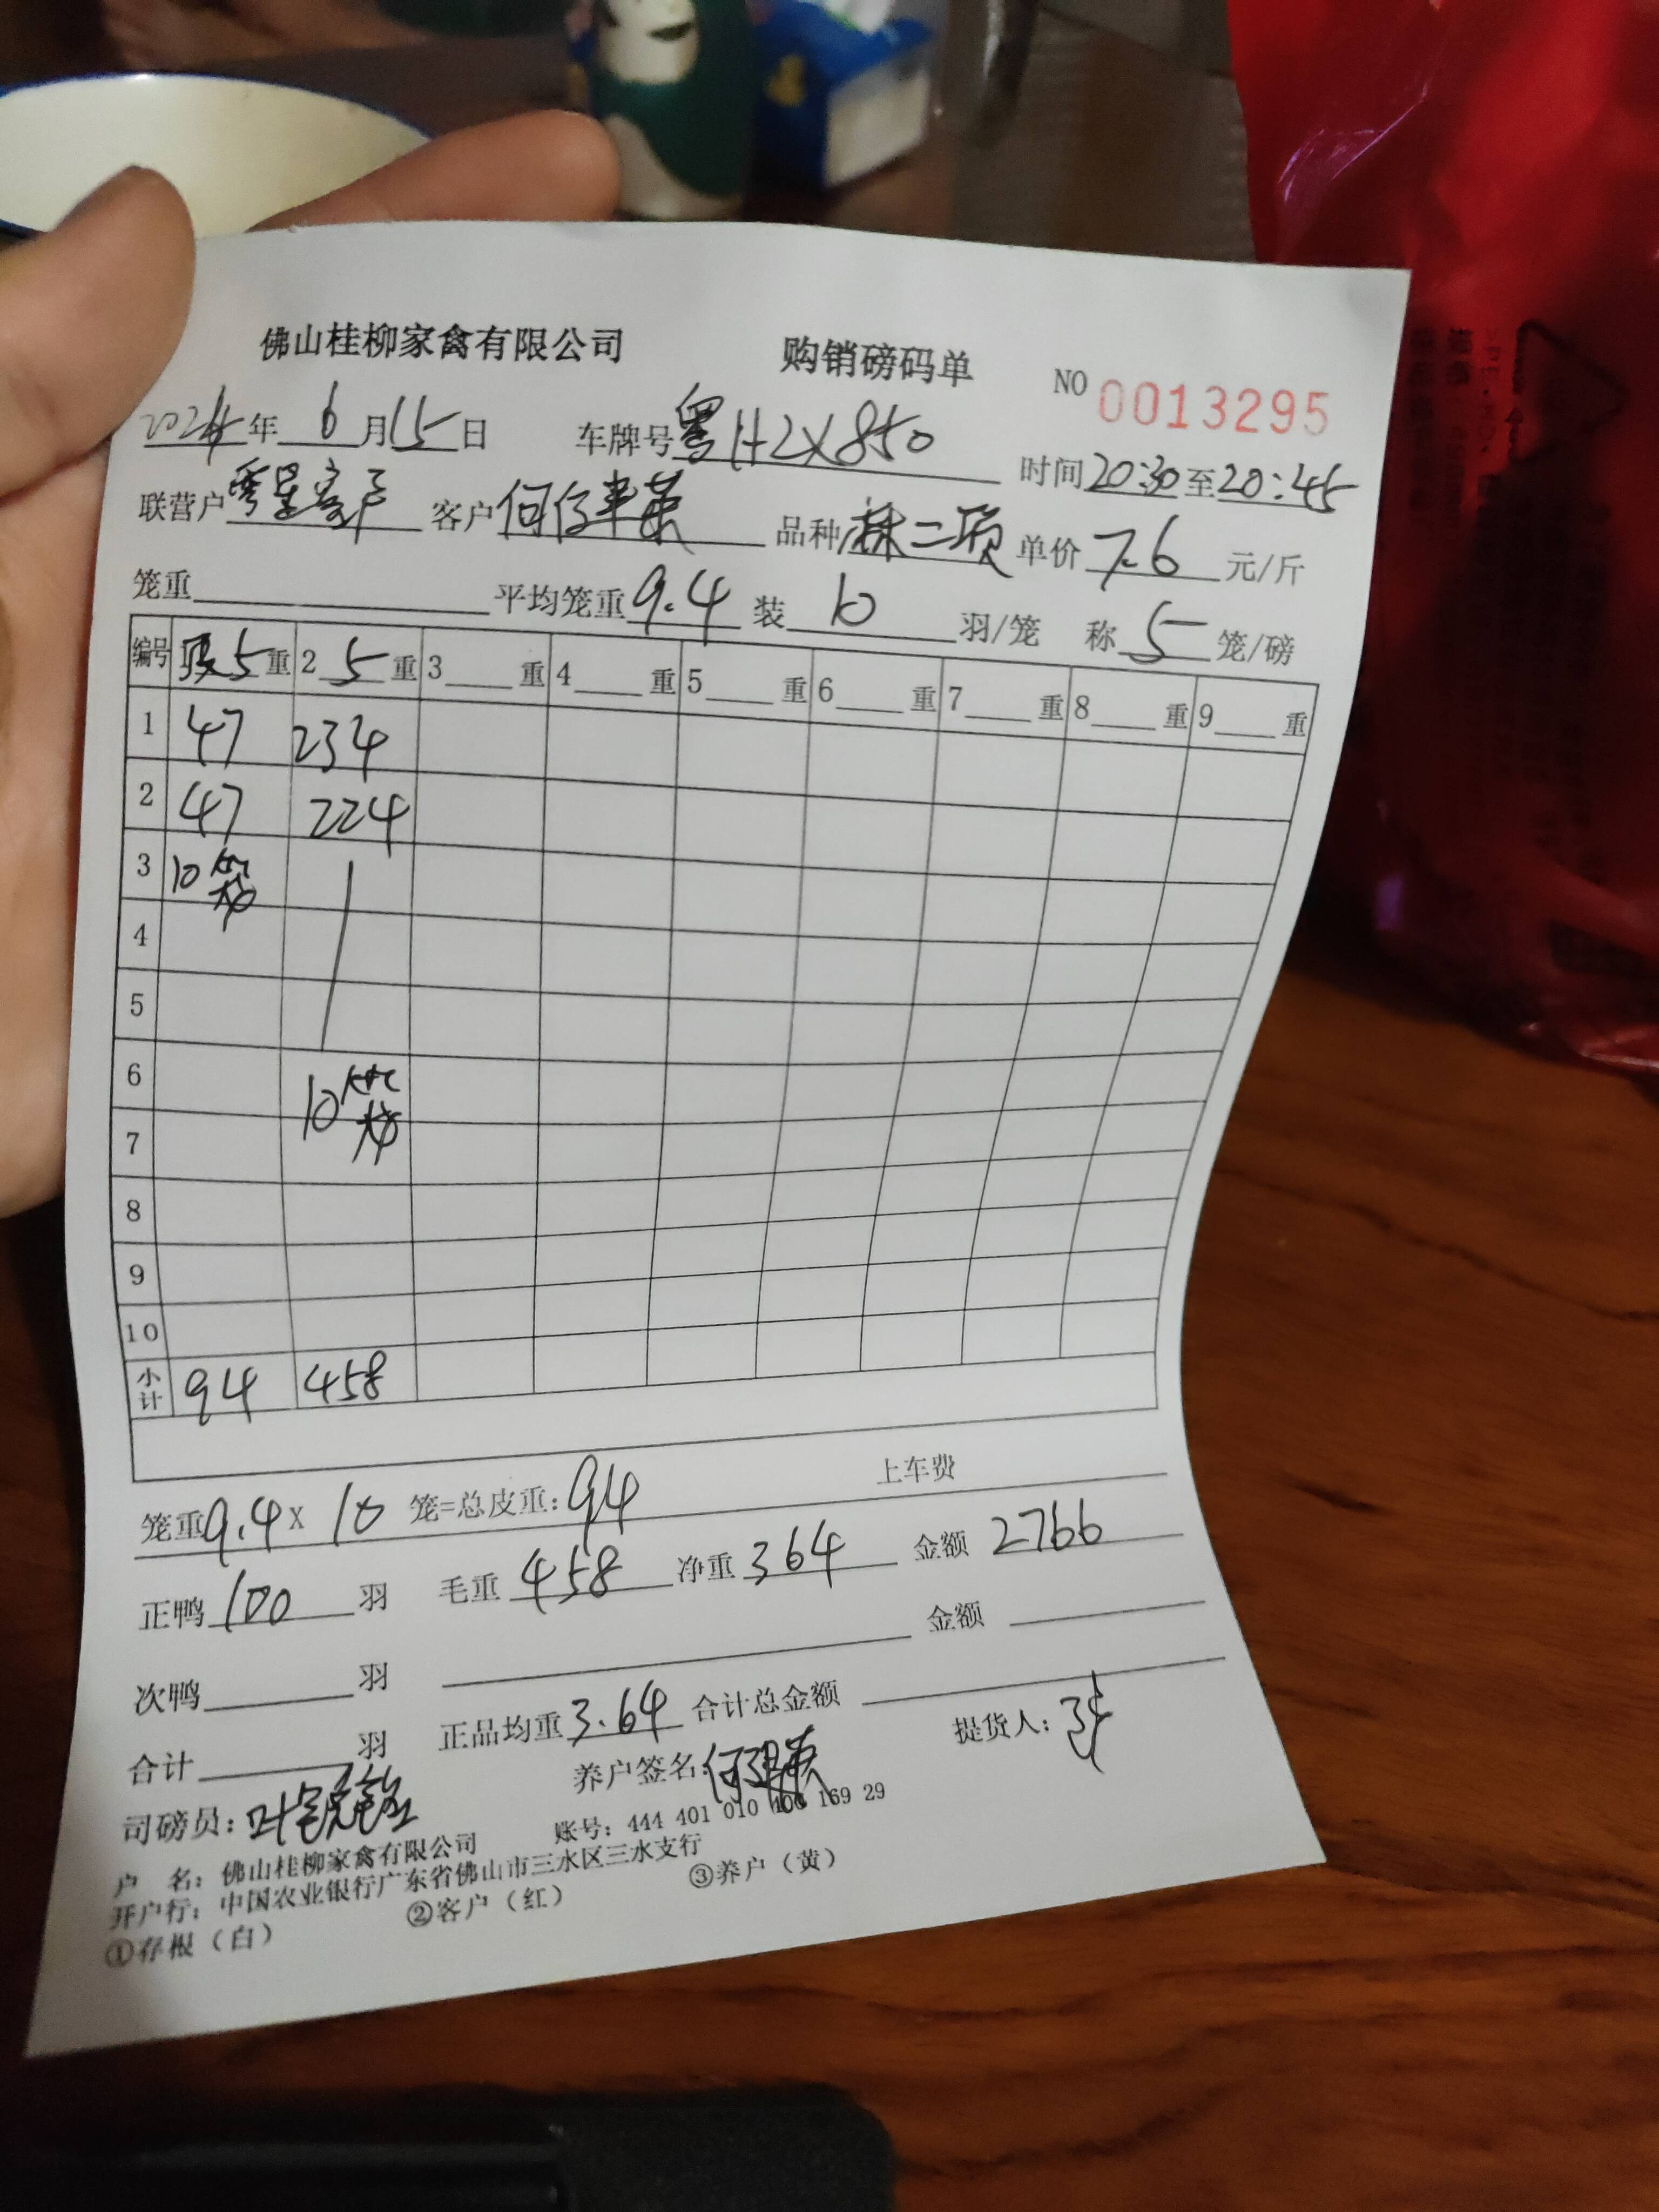 佛山桂柳家禽有限公司 购销磅码单 NO 0013295
2024年 6 月 15 日 车牌号 粤H2X850 时间 20:30 至 20:45
联营户 零星客户 客户 何 品种 二项 单价 7.6 元/斤
笼重 平均笼重 9.4 装 10 羽/笼 称 5 笼/磅
编号 5 重 2 5 重 3 重 4 重 5 重 6 重 7 重 8 重 9 重
1 47 234
2 47 224
3 10笼
4
5
6 10笼
7
8
9
10
小计 94 458
上车费
笼重 9.4 X 10 笼=总皮重: 94
正鸭 100 羽 毛重 458 净重 364 金额 2766
次鸭 羽 金额
合计 羽 正品均重 3.64 合计总金额
司磅员: 叶 养户签名: 何 提货人:
账号: 444 401 010 400 169 29
户 名: 佛山桂柳家禽有限公司
开户行: 中国农业银行广东省佛山市三水区三水支行
①存根（白） ②客户（红） ③养户（黄）